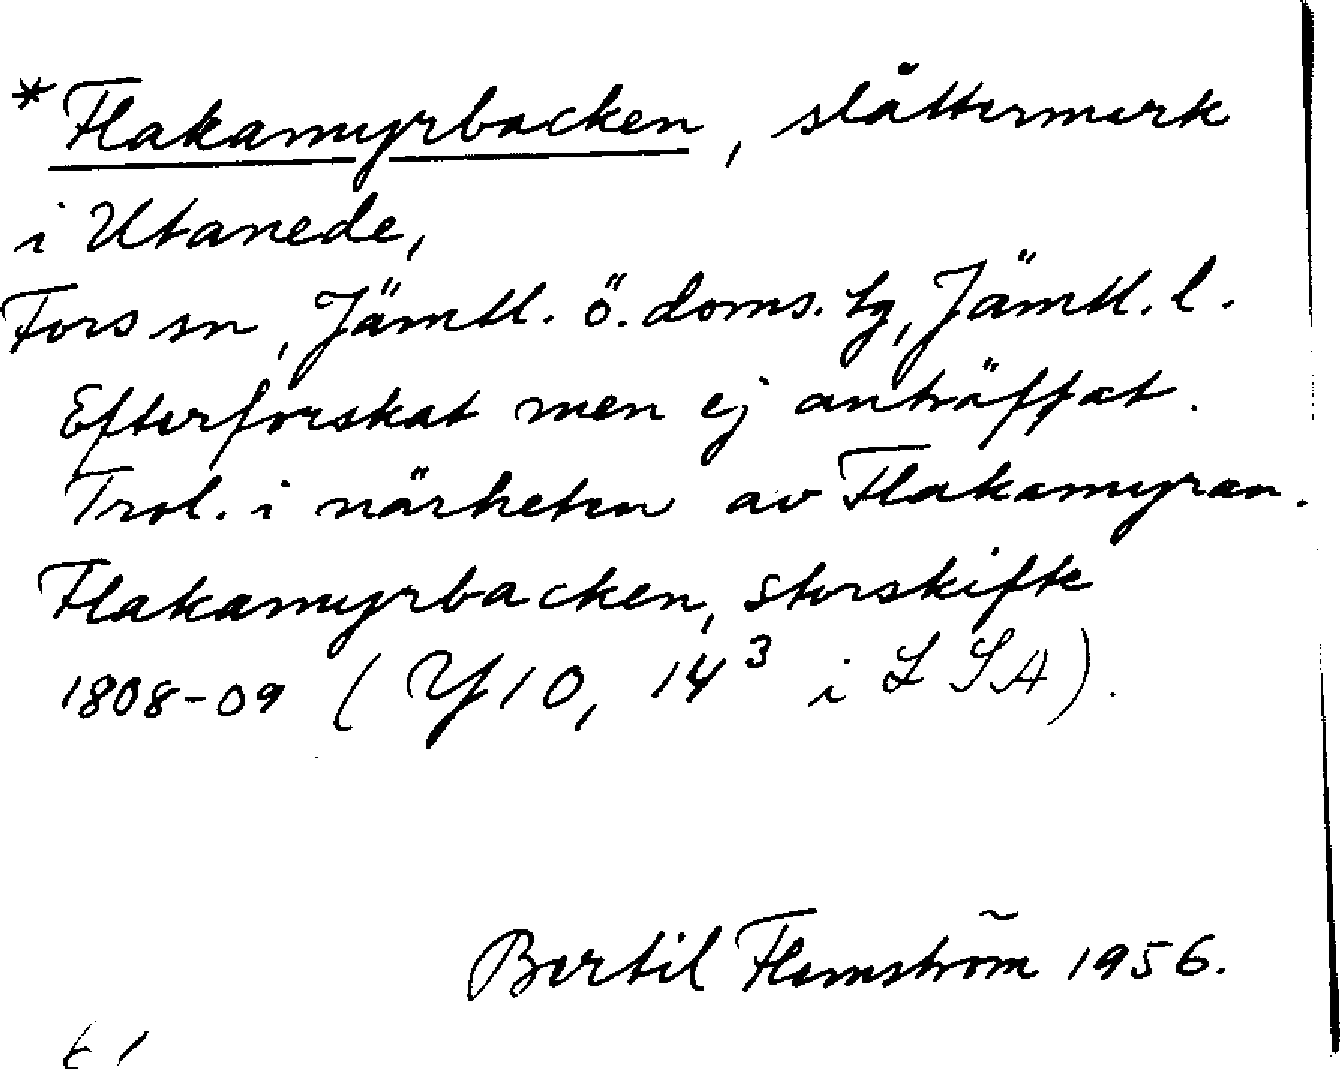 *Flakamyrbacken, slåttermark
i Utanede,
Fors sn, Jämtl. ö. doms. tg, Jämtl. l.
Efterforskat men ej anträffat.
Trol. i närheten av Flakamyran.
Flakamyrbacken, storskifte
1808-09 (Y10, 14³ i LSA).
Bertil Flemström 1956.